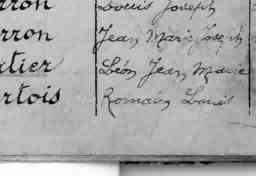 rron Louis Joseph
rron Jean Marie Joseph
tier Léon Jean Marie
rtois Romain Louis